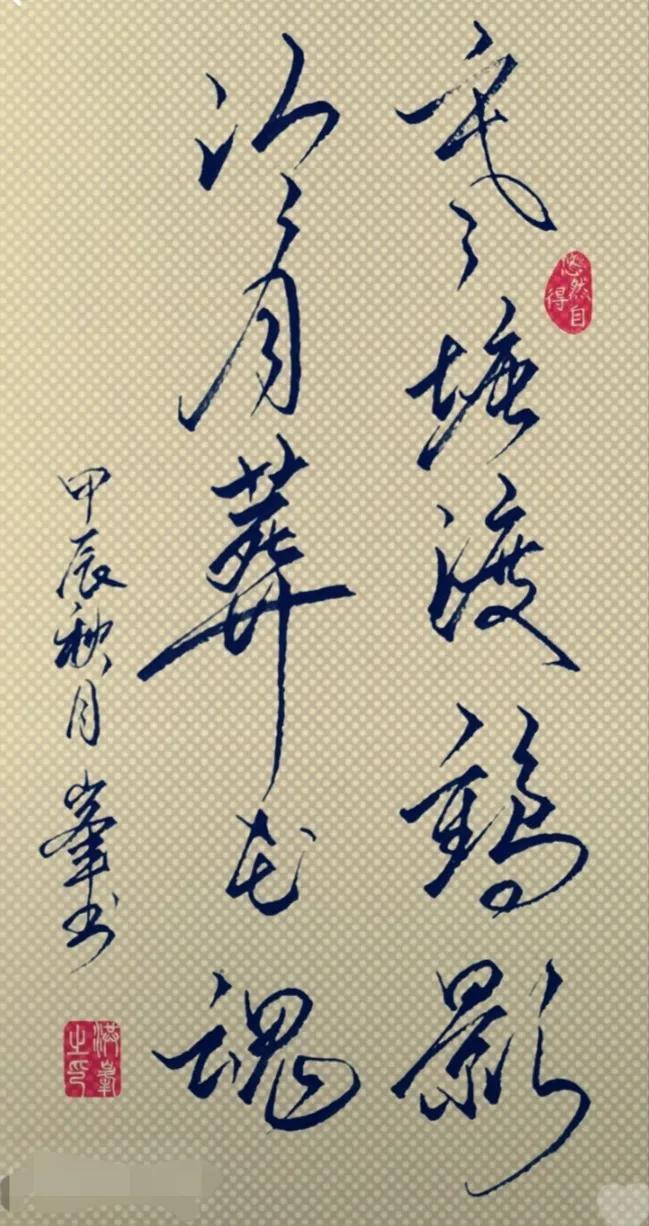 寒塘渡鹤影
冷月葬花魂
甲辰秋月 峰书
悠然自得
洪峰之印